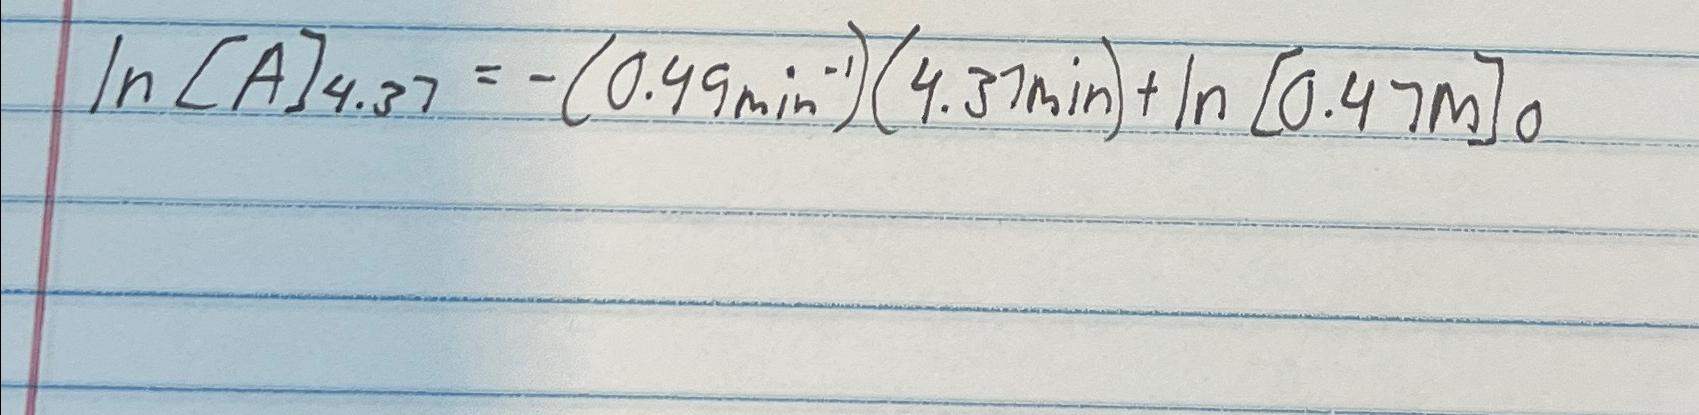 ln [A]4.37 = -(0.49min⁻¹)(4.37min) + ln [0.47M]0